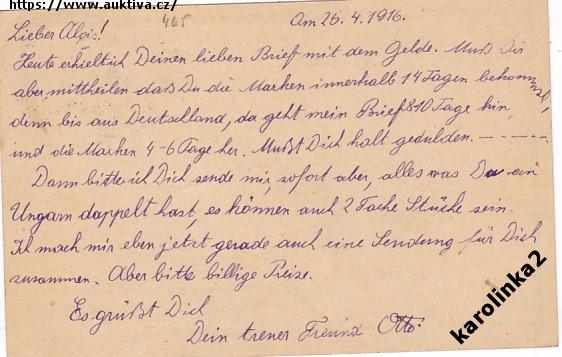 https://www.auktiva.cz/
465
Am 25.4.1916.
Lieber Alois!
Heute erhielt ich Deinen lieben Brief mit dem Gelde. Muß Dir
aber mittheilen daß Du die Marken innerhalb 14 Tagen bekommst,
denn bis aus Deutschland, da geht mein Brief 8-10 Tage hin
und die Marken 4-6 Tage her. Mußt Dich halt gedulden. - - - -
Dann bitte ich Dich sende mir, sofort aber, alles was Du an
Ungarn doppelt hast, es können auch 2 Fache Stücke sein.
Ich mach mir eben jetzt gerade auch eine Sendung für Dich
zusammen. Aber bitte billige Preise.
Es grüßt Dich
Dein treuer Freund Otto.
karolinka2